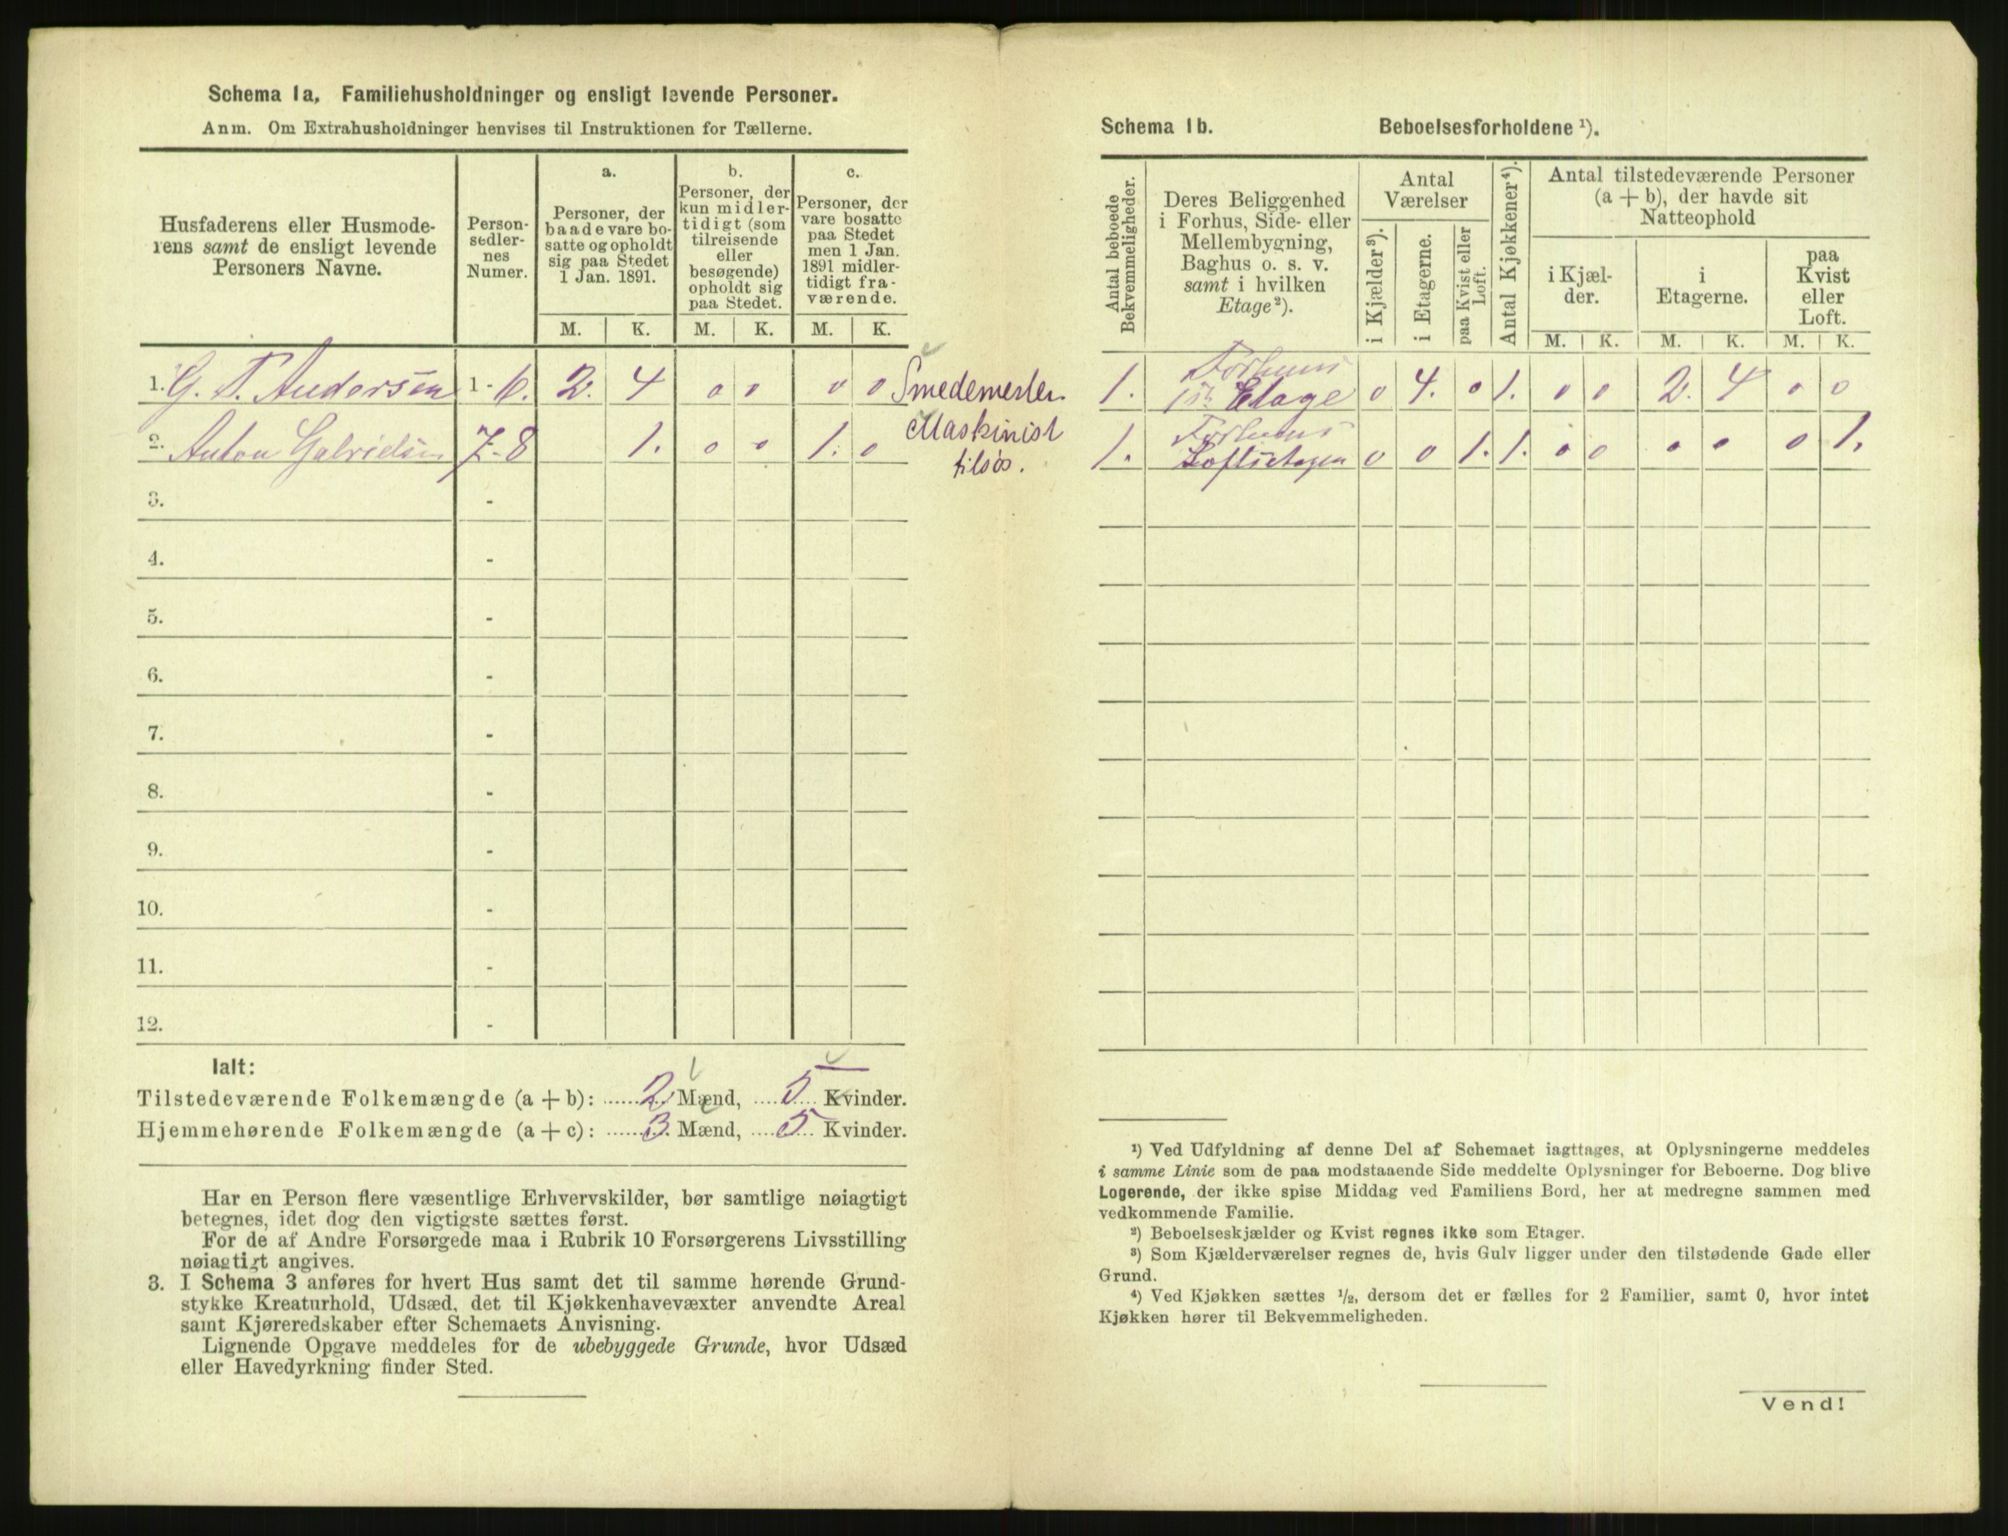 Schema 1a. Familiehusholdninger og ensligt levende Personer.
Anm. Om Extrahusholdninger henvises til Instruktionen for Tællerne.
Husfaderens eller Husmode-
rens samt de ensligt levende
Personers Navne.
Person-
sedler-
nes
Numer.
a.
Personer, der
baade vare bo-
satte og opholdt
sig paa Stedet
1 Jan. 1891.
b.
Personer, der
kun midler-
tidigt (som
tilreisende
eller
besøgende)
opholdt sig
paa Stedet.
c.
Personer, der
vare bosatte
paa Stedet
men 1 Jan.
1891 midler-
tidigt fra-
værende.
M. K. M. K. M. K.
1. G. T. Andersen 1-6. 2. 4 0 0 0 0 Smedemester.
2. Anton Gabrielsen 7-8 1. 0 0 1. 0 Maskinist
tilsøs.
3. -
4. -
5. -
6. -
7. -
8. -
9. -
10. -
11. -
12. -
Ialt:
Tilstedeværende Folkemængde (a + b): 2 Mænd, 5 Kvinder.
Hjemmehørende Folkemængde (a + c): 3. Mænd, 5 Kvinder.
Har en Person flere væsentlige Erhvervskilder, bør samtlige nøiagtigt
betegnes, idet dog den vigtigste sættes først.
For de af Andre Forsørgede maa i Rubrik 10 Forsørgerens Livsstilling
nøiagtigt angives.
3. I Schema 3 anføres for hvert Hus samt det til samme hørende Grund-
stykke Kreaturhold, Udsæd, det til Kjøkkenhavevæxter anvendte Areal
samt Kjøreredskaber efter Schemaets Anvisning.
Lignende Opgave meddeles for de ubebyggede Grunde, hvor Udsæd
eller Havedyrkning finder Sted.
Schema 1b. Beboelsesforholdene ¹).
Antal beboede
Bekvemmeligheder.
Deres Beliggenhed
i Forhus, Side- eller
Mellembygning,
Baghus o. s. v.
samt i hvilken
Etage²).
Antal
Værelser
i Kjælder³).
i Etagerne.
paa Kvist eller
Loft.
Antal Kjøkkener⁴).
Antal tilstedeværende Personer
(a + b), der havde sit
Natteophold
i Kjæl-
der.
i
Etagerne.
paa
Kvist
eller
Loft.
M. K. M. K. M. K.
Forhuus
1. 1ste Etage 0 4. 0 1. 0 0 2. 4 0 0
Forhuus
1. Loftsetagen 0 0 1. 1. 0 0 0 0 0 1.
¹) Ved Udfyldning af denne Del af Schemaet iagttages, at Oplysningerne meddeles
i samme Linie som de paa modstaaende Side meddelte Oplysninger for Beboerne. Dog blive
Logerende, der ikke spise Middag ved Familiens Bord, her at medregne sammen med
vedkommende Familie.
²) Beboelseskjælder og Kvist regnes ikke som Etager.
³) Som Kjælderværelser regnes de, hvis Gulv ligger under den tilstødende Gade eller
Grund.
⁴) Ved Kjøkken sættes ½, dersom det er fælles for 2 Familier, samt 0, hvor intet
Kjøkken hører til Bekvemmeligheden.
Vend!